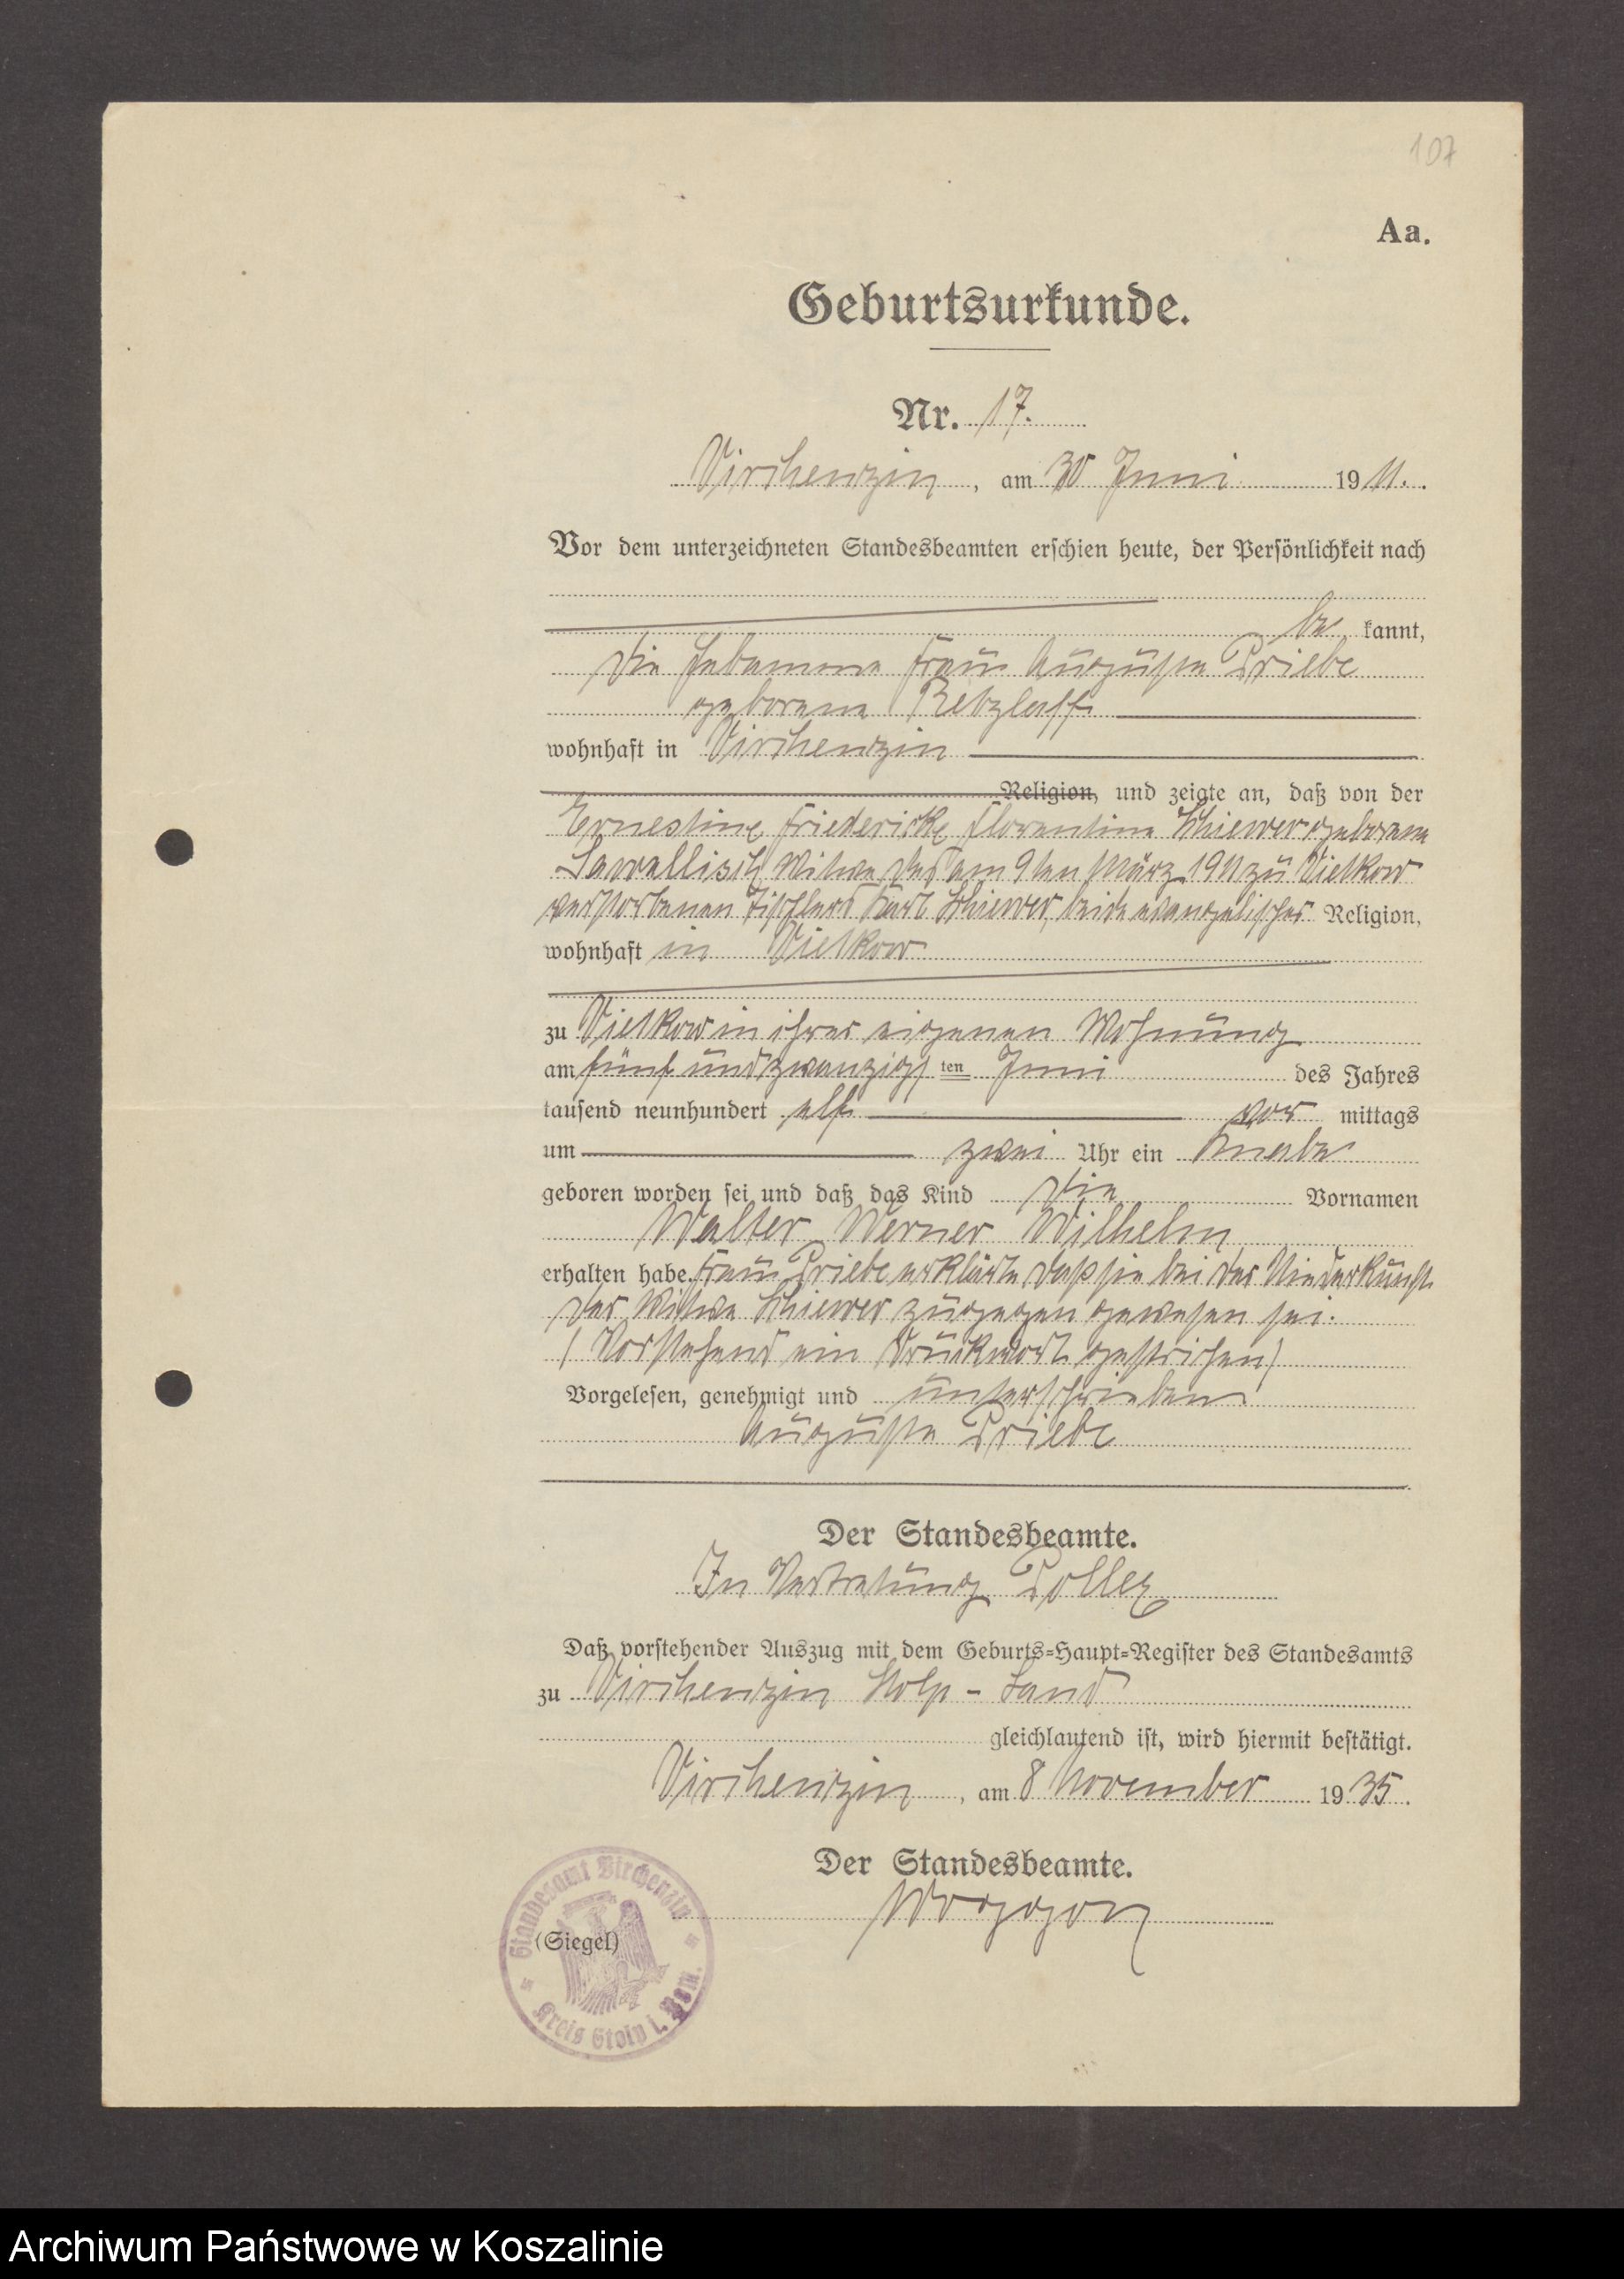 107
Aa.
Geburtsurkunde.
Nr. 17.
Virchenzin, am 30 Juni 1911.
Vor dem unterzeichneten Standesbeamten erschien heute, der Persönlichkeit nach
be kannt,
die Hebamme Frau Auguste Priebe
geborene Retzlaff
wohnhaft in Virchenzin
Religion, und zeigte an, daß von der
Ernestine Friedericke Florentine Schiewer geborene
Lawrellisch, Witwe des am 9ten März 1911 zu Vietkow
verstorbenen Tischlers Karl Schiewer, beide evangelischer Religion,
wohnhaft in Vietkow
zu Vietkow in ihrer eigenen Wohnung
am fünf und zwanzigsten Juni des Jahres
tausend neunhundert elf vor mittags
um zwei Uhr ein Knabe
geboren worden sei und daß das Kind die Vornamen
Walter Werner Wilhelm
erhalten habe. Frau Priebe erklärte, daß sie bei der Niederkunft
der Witwe Schiewer zugegen gewesen sei.
(Vorstehend ein Druckwort gestrichen)
Vorgelesen, genehmigt und unterschrieben
Auguste Priebe
Der Standesbeamte.
In Vertretung Polley
Daß vorstehender Auszug mit dem Geburts-Haupt-Register des Standesamts
zu Virchenzin Stolp-Land
gleichlautend ist, wird hiermit bestätigt.
Virchenzin, am 8 November 1935.
Der Standesbeamte.
(Siegel)
Standesamt Virchenzin
Kreis Stolp i. Pom.
Archiwum Państwowe w Koszalinie